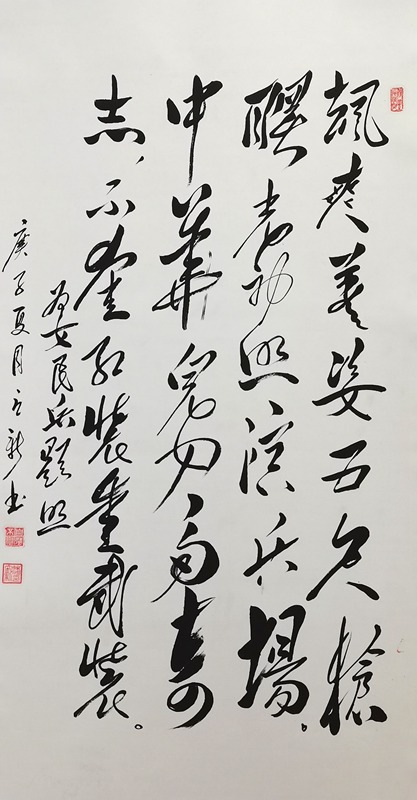 颯爽英姿五尺槍
曙光初照演兵場。
中華兒女多奇
志、不愛紅裝愛武裝。
为女民兵題照
庚子夏月立新书